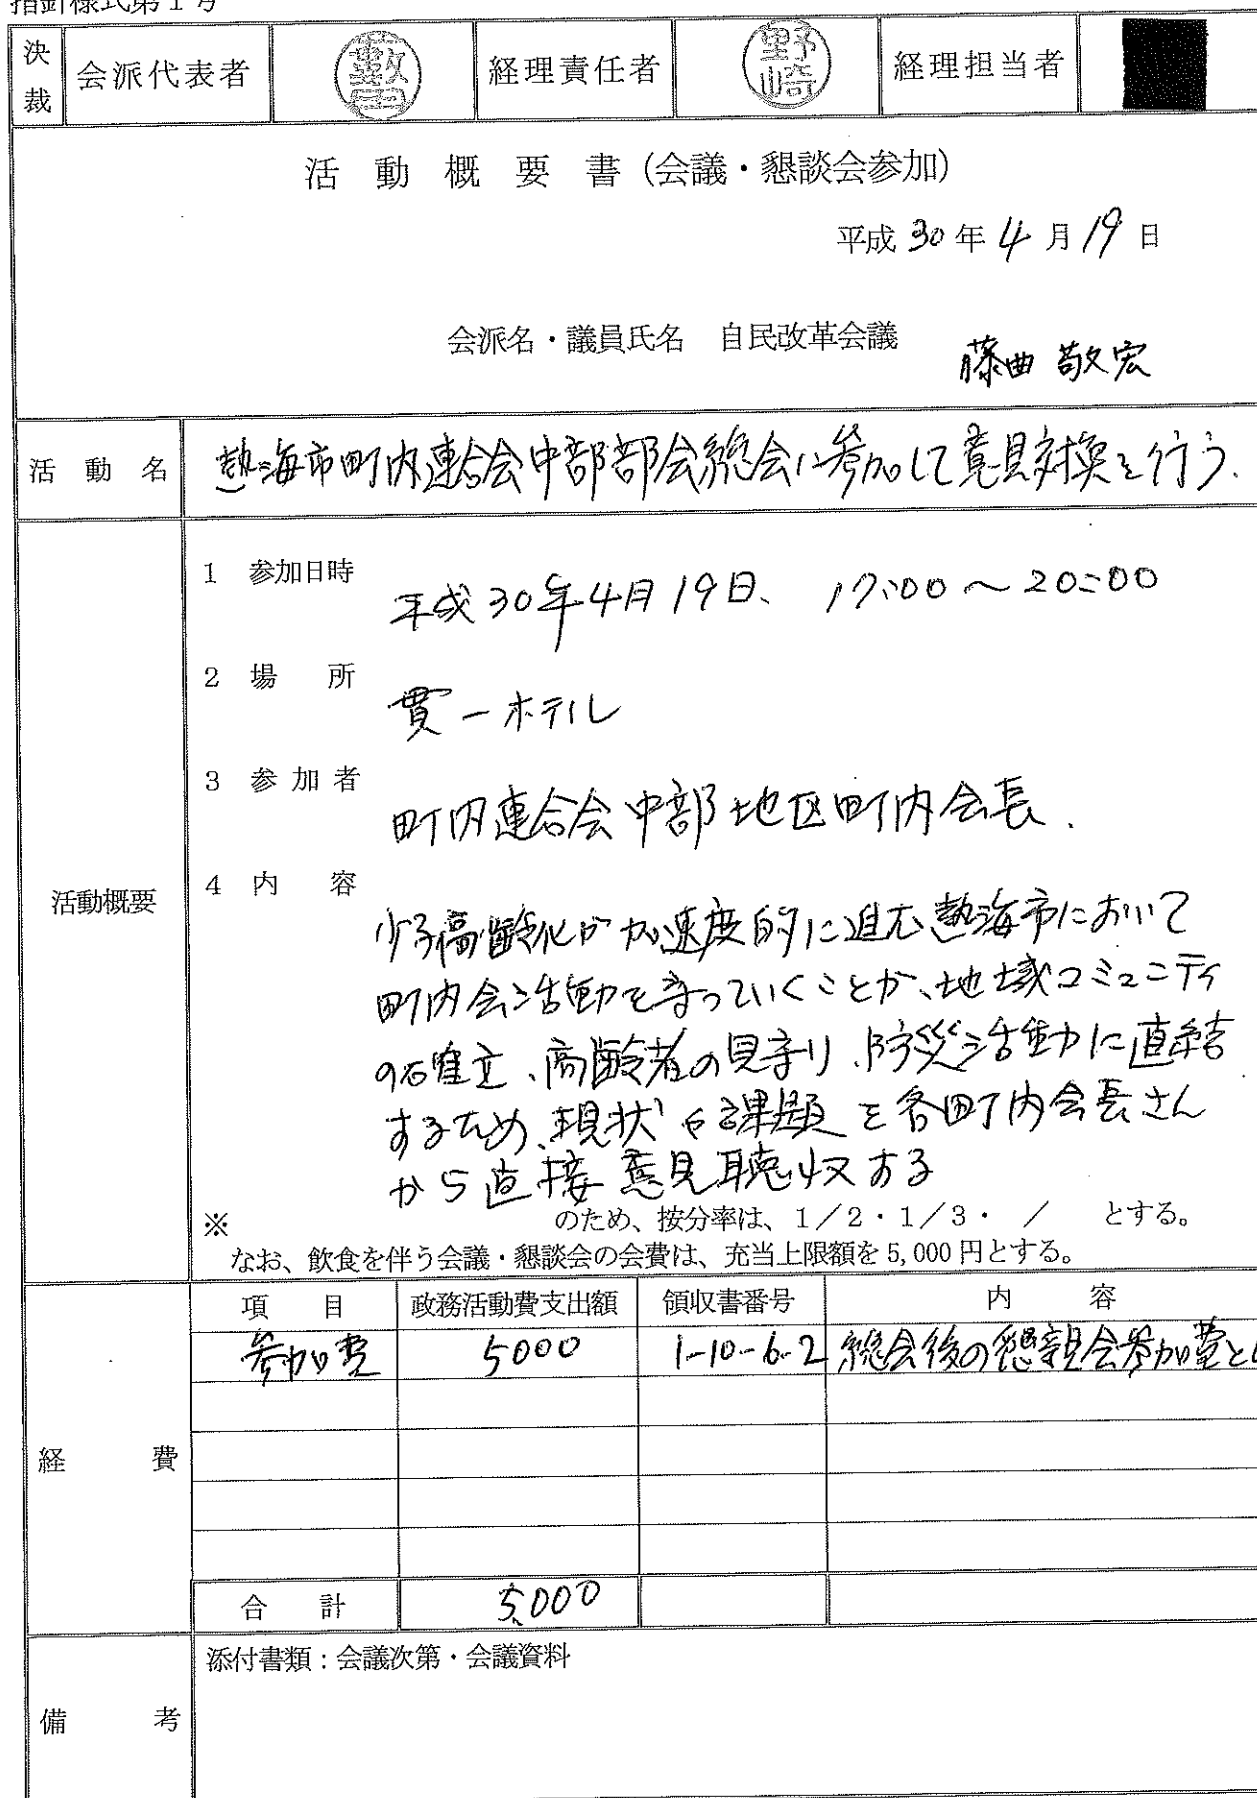 指針様式第1号
決裁 会派代表者 経理責任者 野崎 経理担当者
活動概要書(会議・懇談会参加)
平成30年4月19日
会派名・議員氏名 自民改革会議 藤曲敬宏
活動名 熱海市町内連合会中部部会総会に参加して意見交換を行う.
活動概要
1 参加日時
平成30年4月19日、17:00~20:00
2 場所
貫一ホテル
3 参加者
町内連合会中部地区町内会長.
4 内容
少子高齢化が加速度的に進む熱海市において
町内会活動を守っていくことが、地域コミュニティ
の確立、高齢者の見守り、防災活動に直結
するため、現状や課題を各町内会長さん
から直接意見聴収する
※ のため、按分率は、1/2・1/3・ / とする。
なお、飲食を伴う会議・懇談会の会費は、充当上限額を5,000円とする。
経費
項目 政務活動費支出額 領収書番号 内容
参加費 5000 1-10-6-2 総会後の懇親会参加費とし
合計 5,000
備考
添付書類:会議次第・会議資料